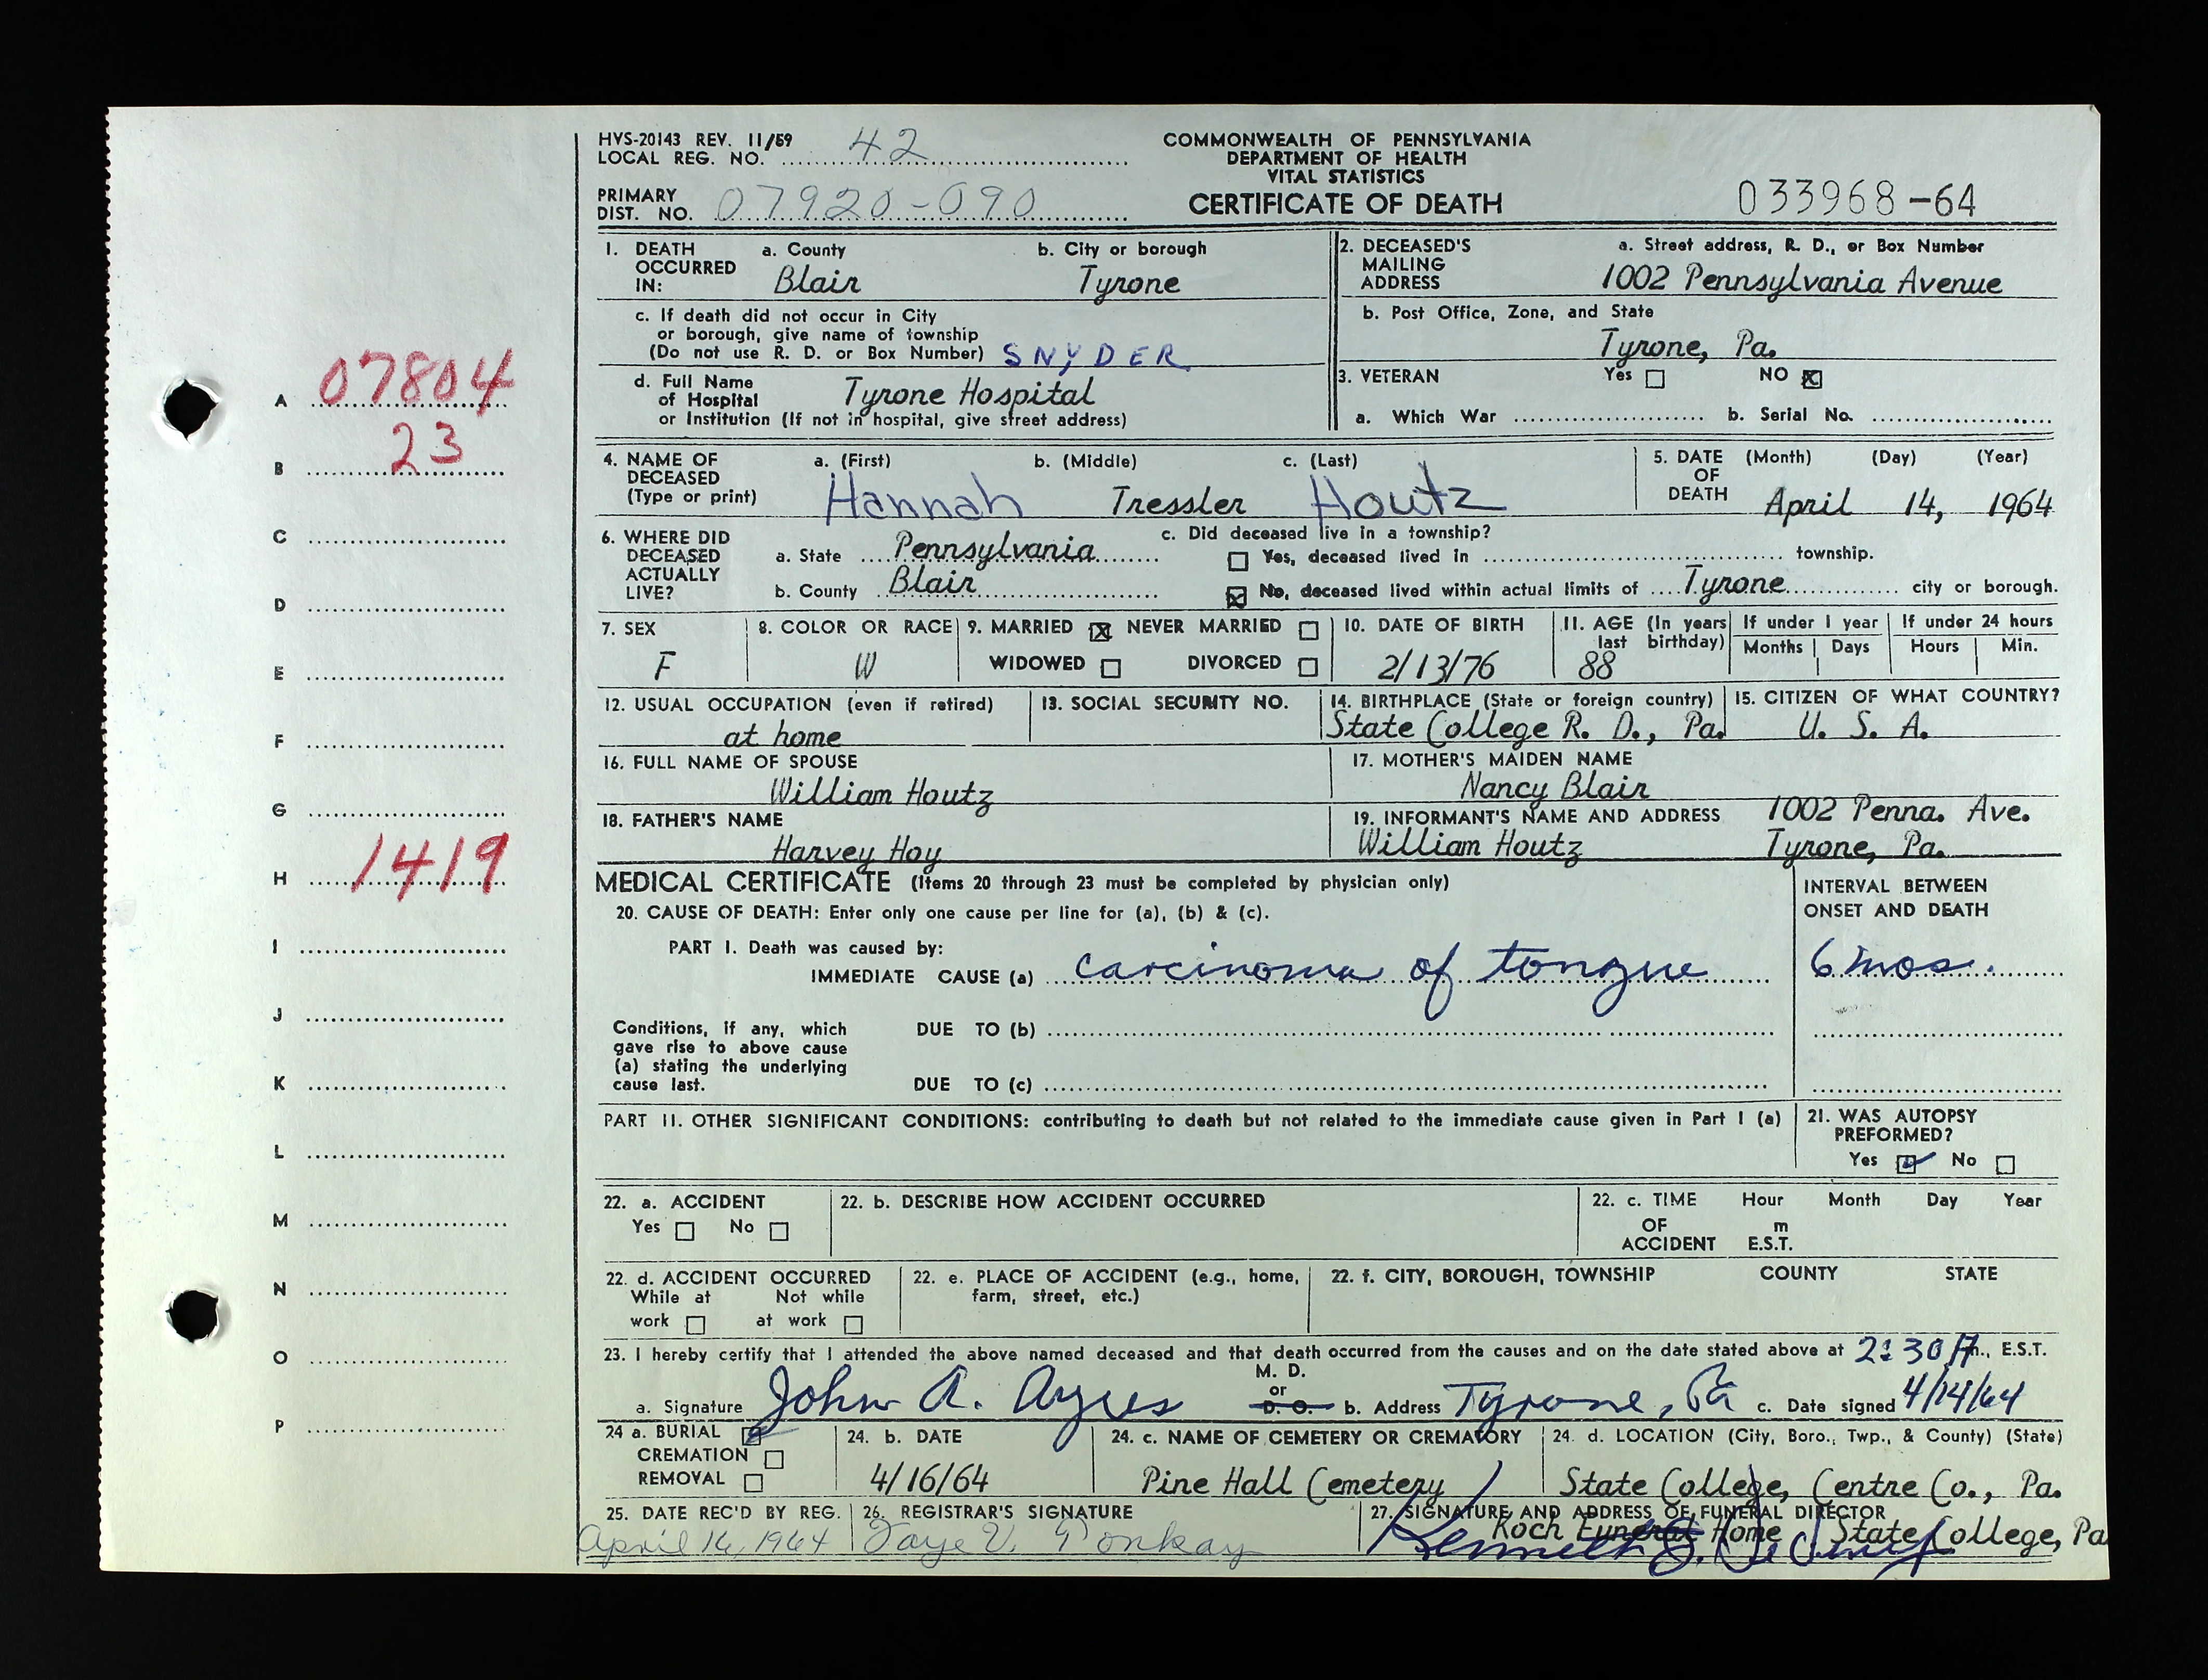 HVS-20143 REV. 11/59
LOCAL REG. NO. 42
COMMONWEALTH OF PENNSYLVANIA
DEPARTMENT OF HEALTH
VITAL STATISTICS
CERTIFICATE OF DEATH
PRIMARY
DIST. NO. 07920-090
033968-64
1. DEATH OCCURRED IN:
a. County
Blair
b. City or borough
Tyrone
c. If death did not occur in City
or borough, give name of township
(Do not use R. D. or Box Number) SNYDER
d. Full Name
of Hospital Tyrone Hospital
or Institution (If not in hospital, give street address)
2. DECEASED'S MAILING ADDRESS
a. Street address, R. D., or Box Number
1002 Pennsylvania Avenue
b. Post Office, Zone, and State
Tyrone, Pa.
3. VETERAN Yes NO X
a. Which War b. Serial No.
4. NAME OF DECEASED (Type or print)
a. (First) b. (Middle) c. (Last)
Hannah Tressler Houtz
5. DATE OF DEATH (Month) (Day) (Year)
April 14, 1964
6. WHERE DID DECEASED ACTUALLY LIVE?
a. State Pennsylvania
b. County Blair
c. Did deceased live in a township?
Yes, deceased lived in township.
X No, deceased lived within actual limits of Tyrone city or borough.
7. SEX
F
8. COLOR OR RACE
W
9. MARRIED X NEVER MARRIED
WIDOWED DIVORCED
10. DATE OF BIRTH
2/13/76
11. AGE (In years last birthday)
88
If under 1 year
Months Days
If under 24 hours
Hours Min.
12. USUAL OCCUPATION (even if retired)
at home
13. SOCIAL SECURITY NO.
14. BIRTHPLACE (State or foreign country)
State College R. D., Pa.
15. CITIZEN OF WHAT COUNTRY?
U. S. A.
16. FULL NAME OF SPOUSE
William Houtz
17. MOTHER'S MAIDEN NAME
Nancy Blair
18. FATHER'S NAME
Harvey Hoy
19. INFORMANT'S NAME AND ADDRESS 1002 Penna. Ave.
William Houtz Tyrone, Pa.
MEDICAL CERTIFICATE (Items 20 through 23 must be completed by physician only)
20. CAUSE OF DEATH: Enter only one cause per line for (a), (b) & (c).
INTERVAL BETWEEN
ONSET AND DEATH
PART I. Death was caused by:
IMMEDIATE CAUSE (a) carcinoma of tongue 6 mos.
Conditions, if any, which
gave rise to above cause
(a) stating the underlying
cause last.
DUE TO (b)
DUE TO (c)
PART II. OTHER SIGNIFICANT CONDITIONS: contributing to death but not related to the immediate cause given in Part I (a)
21. WAS AUTOPSY
PREFORMED?
Yes No
22. a. ACCIDENT
Yes No
22. b. DESCRIBE HOW ACCIDENT OCCURRED
22. c. TIME Hour Month Day Year
OF m
ACCIDENT E.S.T.
22. d. ACCIDENT OCCURRED
While at Not while
work at work
22. e. PLACE OF ACCIDENT (e.g., home,
farm, street, etc.)
22. f. CITY, BOROUGH, TOWNSHIP COUNTY STATE
23. I hereby certify that I attended the above named deceased and that death occurred from the causes and on the date stated above at 2:30 A m., E.S.T.
a. Signature John A. Ayres M. D. or D. O. b. Address Tyrone, Pa c. Date signed 4/14/64
24 a. BURIAL
CREMATION
REMOVAL
24. b. DATE
4/16/64
24. c. NAME OF CEMETERY OR CREMATORY
Pine Hall Cemetery
24. d. LOCATION (City, Boro., Twp., & County) (State)
State College, Centre Co., Pa.
25. DATE REC'D BY REG.
April 16, 1964
26. REGISTRAR'S SIGNATURE
27. SIGNATURE AND ADDRESS OF FUNERAL DIRECTOR
Koch Funeral Home State College, Pa
Kenneth
A 07804
B 23
C
D
E
F
G
H 1419
I
J
K
L
M
N
O
P